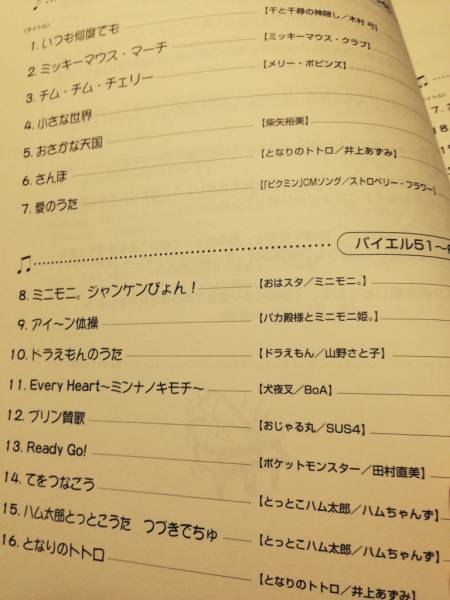 〈タイトル〉
1. いつも何度でも 【千と千尋の神隠し／木村 弓】
2. ミッキーマウス・マーチ 【ミッキーマウス・クラブ】
3. チム・チム・チェリー 【メリー・ポピンズ】
4. 小さな世界
5. おさかな天国 【柴矢裕美】
6. さんぽ 【となりのトトロ／井上あずみ】
7. 愛のうた 【「ピクミン」CMソング／ストロベリー・フラワー】
バイエル51〜
8. ミニモニ。ジャンケンぴょん！ 【おはスタ／ミニモニ。】
9. アイ〜ン体操 【バカ殿様とミニモニ姫。】
10. ドラえもんのうた 【ドラえもん／山野さと子】
11. Every Heart〜ミンナノキモチ〜 【犬夜叉／BoA】
12. プリン賛歌 【おじゃる丸／SUS4】
13. Ready Go! 【ポケットモンスター／田村直美】
14. てをつなごう 【とっとこハム太郎／ハムちゃんず】
15. ハム太郎とっとこうた つづきでちゅ 【とっとこハム太郎／ハムちゃんず】
16. となりのトトロ 【となりのトトロ／井上あずみ】